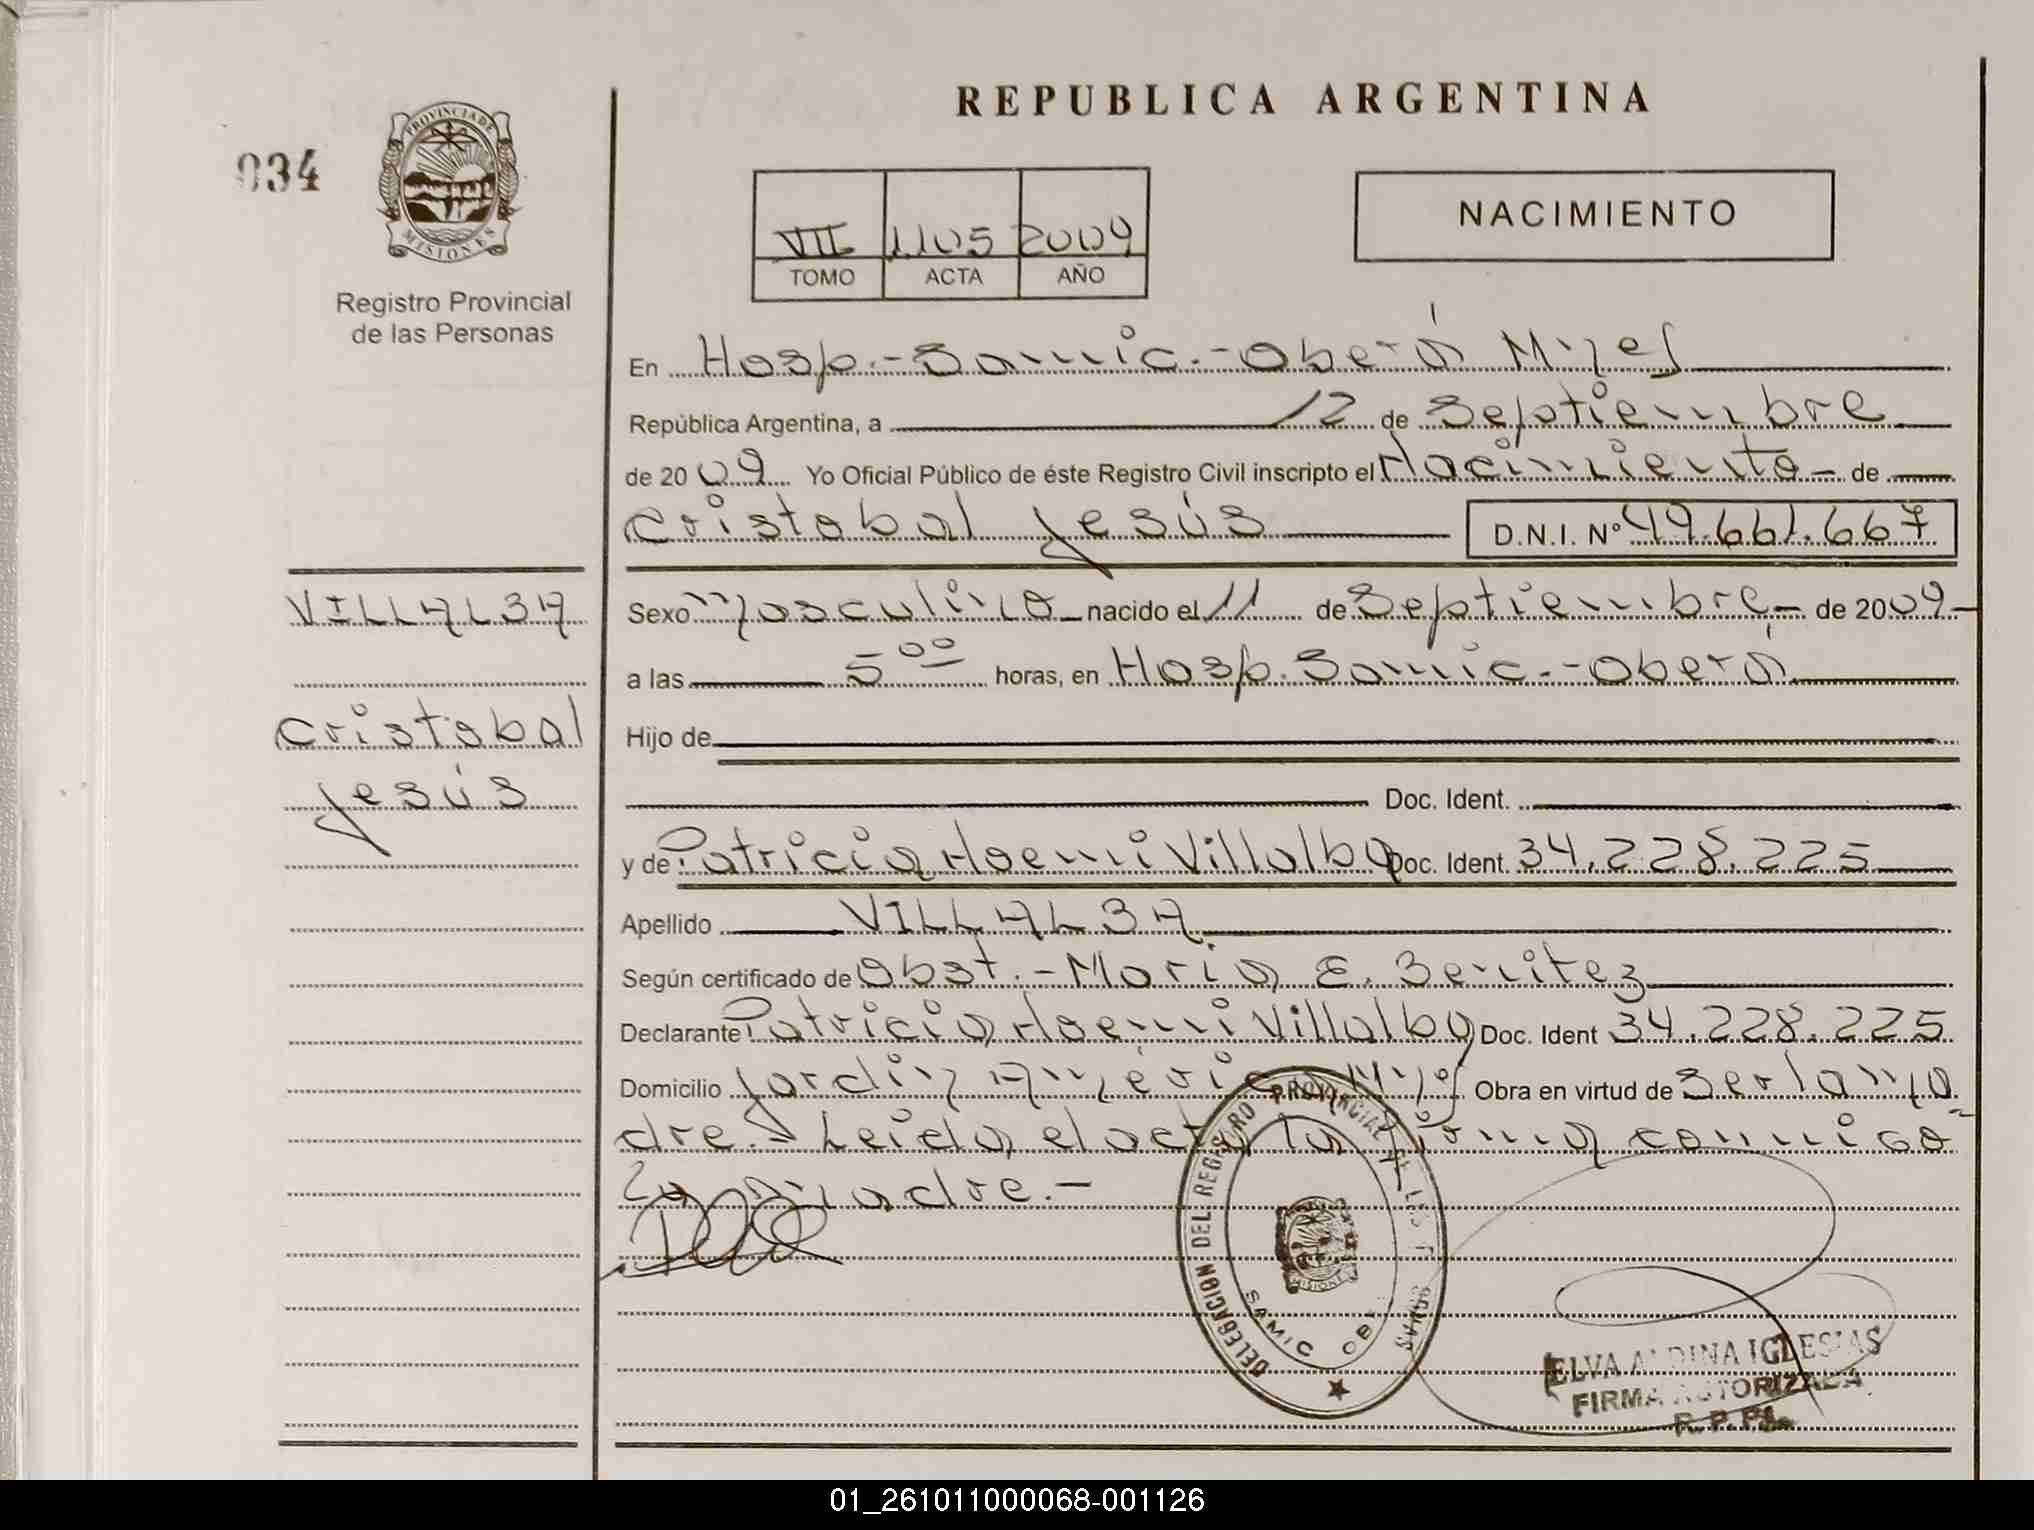 REPUBLICA ARGENTINA
034
PROVINCIA DE
MISIONES
Registro Provincial
de las Personas
VII 1105 2009
TOMO ACTA AÑO
NACIMIENTO
En Hosp.-Samic.-Oberá Mnes
República Argentina, a 12 de Septiembre
de 2009 Yo Oficial Público de éste Registro Civil inscripto el Nacimiento - de
Cristobal Jesús D.N.I. Nº 49.661.667
VILLALBA
Cristobal
Jesús
Sexo Masculino nacido el 11 de Septiembre - de 2009-
a las 5 00 horas, en Hosp. Samic.-Oberá
Hijo de
Doc. Ident.
y de Patricia Noemi Villalba Doc. Ident. 34.228.225
Apellido VILLALBA
Según certificado de Obst.-Maria E. Benitez
Declarante Patricia Noemi Villalba Doc. Ident 34.228.225
Domicilio Jardin América Mnes Obra en virtud de Ser la ma
dre.- Leida el acta la firma conmigo
La madre.-
DELEGACION DEL REGISTRO PROVINCIAL DE LAS PERSONAS
SAMIC
MISIONES
ELVA ALDINA IGLESIAS
FIRMA AUTORIZADA
R.P.P.
01_261011000068-001126